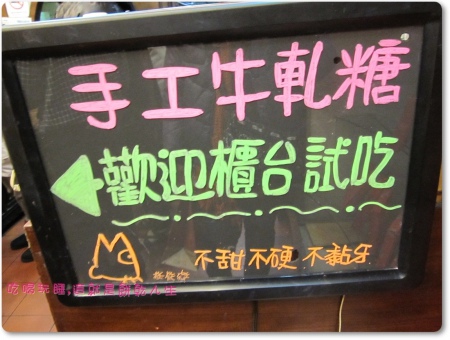 手工牛軋糖
歡迎櫃台試吃
不甜 不硬 不黏牙